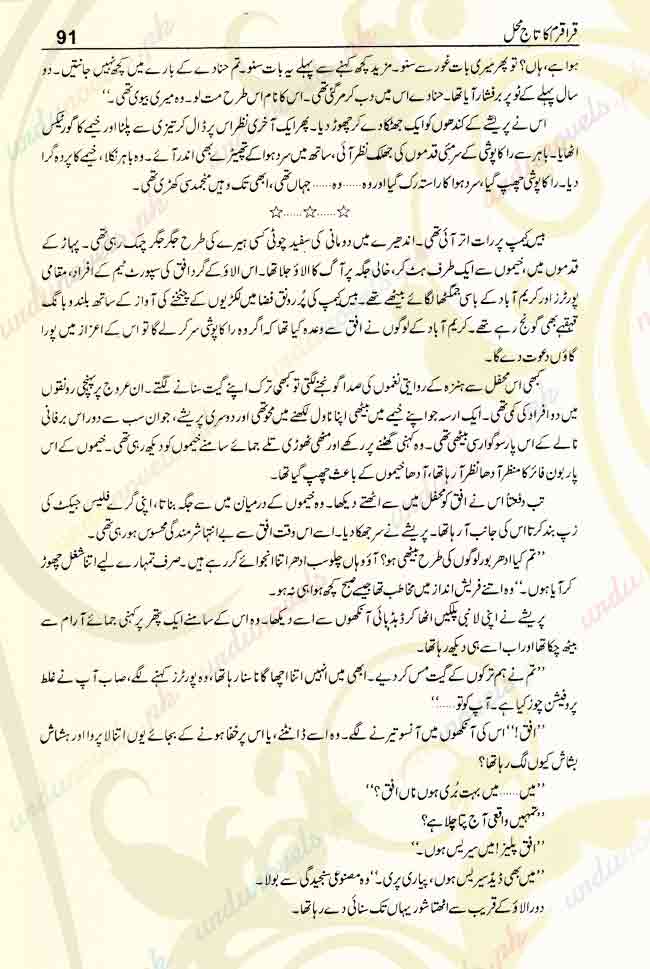 قراقرم کا تاج محل
91
ہوا ہے، ہاں؟ تو پھر میری بات غور سے سنو۔ مزید کچھ کہنے سے پہلے یہ بات سنو۔ تم حنادے کے بارے میں کچھ نہیں جانتیں۔ دو
سال پہلے کے ٹو پر برفشار آیا تھا۔ حنادے اس میں دب کر مر گئی تھی۔ اس کا نام اس طرح مت لو۔ وہ میری بیوی تھی۔‘‘
اس نے پریشے کے کندھوں کو ایک جھٹکا دے کر چھوڑ دیا۔ پھر ایک آخری نظر اس پر ڈال کر تیزی سے پلٹا اور خیمے کا گورٹیکس
اٹھایا۔ باہر سے راکاپوشی کے سرمئی قدموں کی جھلک نظر آئی، ساتھ میں سرد ہوا کے تھپیڑے بھی اندر آئے۔ وہ باہر نکلا، خیمے کا پردہ گرا
دیا۔ راکاپوشی چھپ گیا، سرد ہوا کا راستہ رک گیا اور وہ...... وہ...... جہاں تھی، ابھی تک وہیں منجمد سی کھڑی تھی۔
☆......☆......☆
بیس کیمپ پر رات اتر آئی تھی۔ اندھیرے میں دومانی کی سفید چوٹی کسی ہیرے کی طرح جگر جگر چمک رہی تھی۔ پہاڑ کے
قدموں میں، خیموں سے ایک طرف ہٹ کر، خالی جگہ پر آگ کا الاؤ جلا تھا۔ اس الاؤ کے گرد افق کی سپورٹ ٹیم کے افراد، مقامی
پورٹرز اور کریم آباد کے باسی جمگھٹا لگائے بیٹھے تھے۔ بیس کیمپ کی پُر رونق فضا میں لکڑیوں کے چٹخنے کی آواز کے ساتھ بلند و بانگ
قہقہے بھی گونج رہے تھے۔ کریم آباد کے لوگوں نے افق سے وعدہ کیا تھا کہ اگر وہ راکاپوشی سر کر لے گا تو اس کے اعزاز میں پورا
گاؤں دعوت دے گا۔
کبھی اس محفل سے ہنزہ کے روایتی نغموں کی صدا گونجنے لگتی تو کبھی ترک اپنے گیت سنانے لگتے۔ ان عروج پر پہنچی رونقوں
میں دو افراد کی کمی تھی۔ ایک ارسہ جو اپنے خیمے میں بیٹھی اپنا ناول لکھنے میں محو تھی اور دوسری پریشے، جو ان سب سے دور اس برفانی
نالے کے اس پار سوگوار سی بیٹھی تھی۔ وہ کہنی گھٹنے پر رکھے اور مٹھی ٹھوڑی تلے جمائے سامنے خیموں کو دیکھ رہی تھی۔ خیموں کے اس
پار بون فائر کا منظر آدھا نظر آ رہا تھا، آدھا خیموں کے باعث چھپ گیا تھا۔
تب دفعتاً اس نے افق کو محفل میں سے اٹھتے دیکھا۔ وہ خیموں کے درمیان میں سے جگہ بناتا، اپنی گرے فلیس جیکٹ کی
زپ بند کرتا اس کی جانب آ رہا تھا۔ پریشے نے سر جھکا دیا۔ اسے اس وقت افق سے بے انتہا شرمندگی محسوس ہو رہی تھی۔
’’تم کیا ادھر بور لوگوں کی طرح بیٹھی ہو؟ آؤ وہاں چلو سب ادھر اتنا انجوائے کر رہے ہیں۔ صرف تمہارے لیے اتنا شغل چھوڑ
کر آیا ہوں۔‘‘ وہ اتنے فریش انداز میں مخاطب تھا جیسے صبح کچھ ہوا ہی نہ ہو۔
پریشے نے اپنی لانبی پلکیں اٹھا کر ڈبڈبائی آنکھوں سے اسے دیکھا۔ وہ اس کے سامنے ایک پتھر پر کہنی جمائے آرام سے
بیٹھ چکا تھا اور اب اسے ہی دیکھ رہا تھا۔
’’تم نے ہم ترکوں کے گیت مس کر دیے۔ ابھی میں انہیں اتنا اچھا گانا سنا رہا تھا، وہ پورٹرز کہنے لگے، صاب آپ نے غلط
پروفیشن چوز کیا ہے۔ آپ کو تو......‘‘
’’افق!‘‘ اس کی آنکھوں میں آنسو تیرنے لگے۔ وہ اسے ڈانٹنے، یا اس پر خفا ہونے کے بجائے یوں اتنا لاپروا اور ہشاش
بشاش کیوں لگ رہا تھا؟
’’میں...... میں بہت بُری ہوں ناں افق؟‘‘
’’تمہیں واقعی آج پتا چلا ہے؟
’’افق پلیز! میں سیریس ہوں۔‘‘
’’میں بھی ڈیڈ سیریس ہوں، پیاری پری۔‘‘ وہ مصنوعی سنجیدگی سے بولا۔
دور الاؤ کے قریب سے اٹھتا شور یہاں تک سنائی دے رہا تھا۔